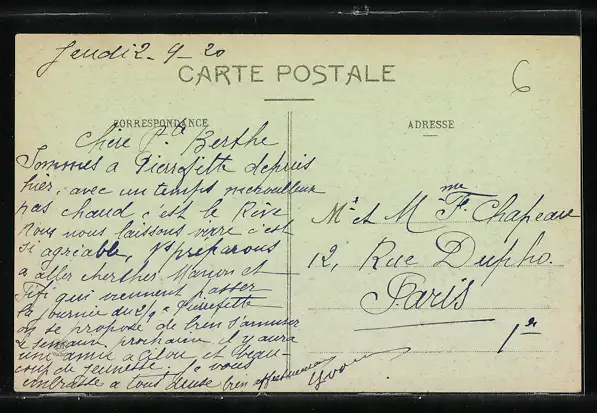 Jeudi 2-9-20
CARTE POSTALE
6
CORRESPONDANCE
ADRESSE
Chère Pte Berthe
Sommes a Pierrefitte depuis
hier, avec un temps merveilleux
pas chaud, c'est le Rêve
nous nous laissons vivre c'est
si agréable, ns préparons
a aller chercher Manon et
Fifi qui viennent passer
la journée du 2/9 a Pierrefitte
on se propose de bien s'amuser
la semaine prochaine il y aura
une amie a Gilou, et beau-
coup de jeunesse. Je vous
embrasse a tous deux bien affectueusement
Yvonne
Mr et Mme F. Chapeau
12, Rue Dupho.
Paris
1er